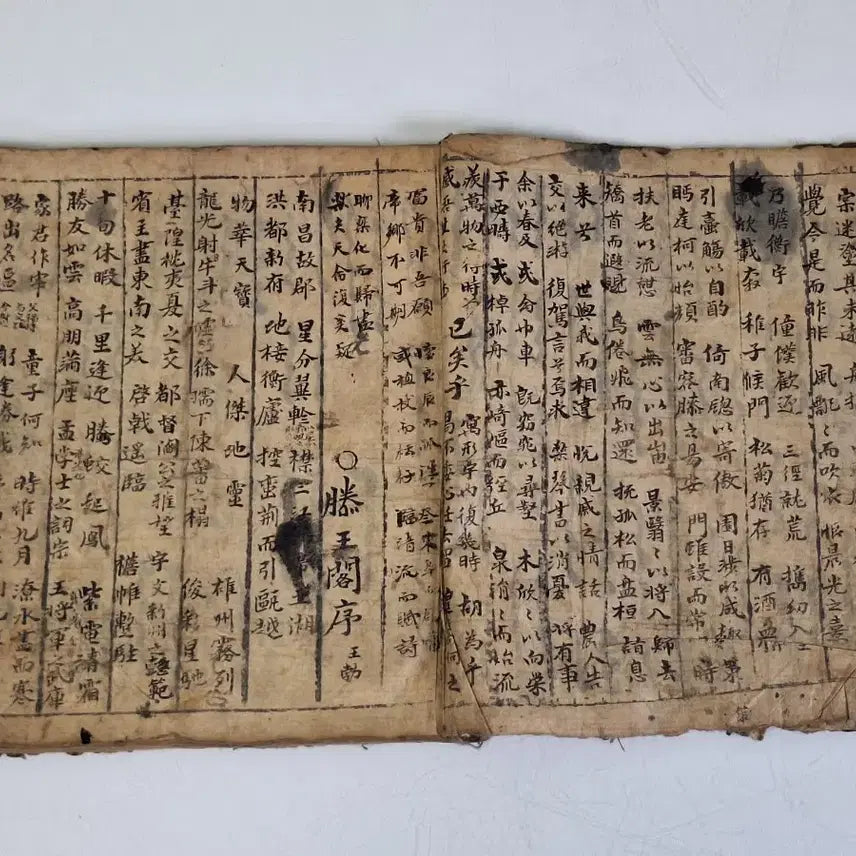 迷塗其未遠
覺今是而昨非 風飄〻而吹衣 恨晨光之熹
乃瞻衡宇 僮僕歡迎 三徑就荒 携幼入
載欣載奔 稚子候門 松菊猶存 有酒盈
引壺觴以自酌 倚南窓以寄傲 園日涉以成趣 策
眄庭柯以怡顔 審容膝之易安 門雖設而常 時
扶老以流憩 雲無心以出岫 景翳〻以將入 歸去
矯首而遐觀 鳥倦飛而知還 撫孤松而盤桓 請息
来兮 世與我而相違 悅親戚之情話 農人告
交以絶游 復駕言兮焉求 樂琴書以消憂 將有事
余以春及 或命巾車 旣窈窕以尋壑 木欣〻以向榮
于西疇 或棹孤舟 亦崎嶇而經丘 泉涓〻而始流
羨萬物之行時 已矣乎 寓形宇内復幾時 胡為乎
曷不委心任去留 何之
富貴非吾願 懷良辰而孤
帝鄉不可期 或植杖而耘耔 臨清流而賦詩
聊乘化而歸盡
樂夫天命復奚疑
○滕王閣序 王勃
南昌故郡 星分翼軫 襟三江 五湖
洪都新府 地接衡廬 控蠻荊而引甌越
物華天寶 人傑地靈 雄州霧列
龍光射牛斗之墟 徐孺下陳蕃之榻 俊彩星馳
臺隍枕夷夏之交 都督閻公之雅望 宇文新州之懿範
賓主盡東南之美 啓戟遥臨 襜帷暫駐
十旬休暇 千里逢迎 騰蛟起鳳 紫電清霜
勝友如雲 高朋滿座 孟學士之詞宗 王將軍武庫
家君作宰 童子何知 時維九月 潦水盡而寒
路出名區